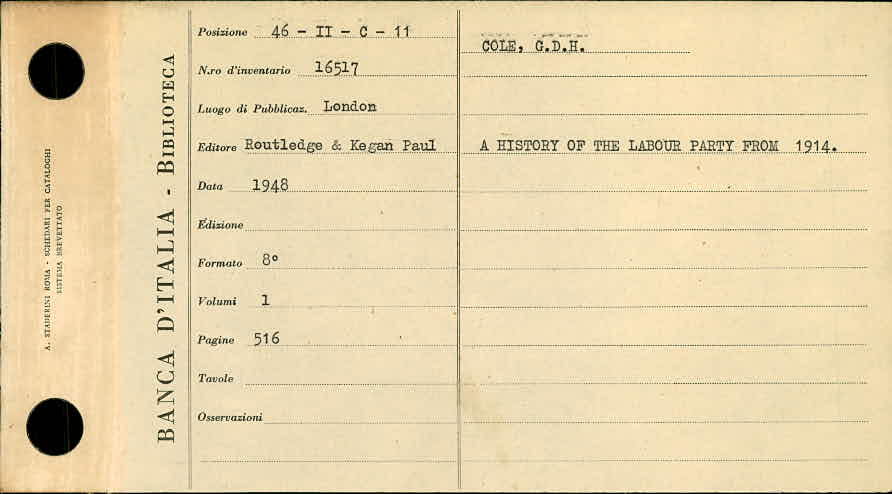 A. STADERINI ROMA - SCHEDARI PER CATALOGHI
SISTEMA BREVETTATO
BANCA D'ITALIA - BIBLIOTECA
Posizione 46 - II - C - 11
N.ro d'inventario 16517
Luogo di Pubblicaz. London
Editore Routledge & Kegan Paul
Data 1948
Edizione
Formato 8°
Volumi 1
Pagine 516
Tavole
Osservazioni
COLE, G.D.H.
A HISTORY OF THE LABOUR PARTY FROM 1914.